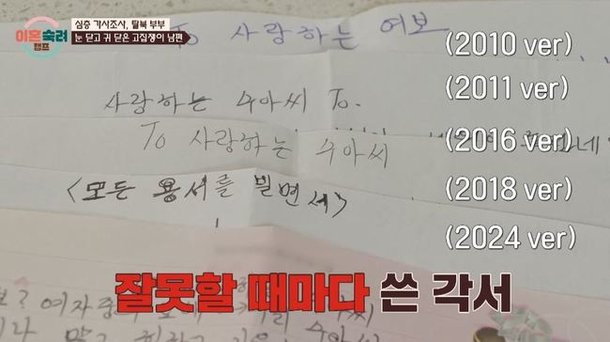 심층 가사조사, 탈북 부부
이혼숙려
캠프
눈 닫고 귀 닫은 고집쟁이 남편
To 사랑하는 여보
(2010 ver)
(2011 ver)
사랑하는 수아씨 To.
To 사랑하는 수아씨
(2016 ver)
<모든 용서를 빌면서>
(2018 ver)
(2024 ver)
잘못할 때마다 쓴 각서